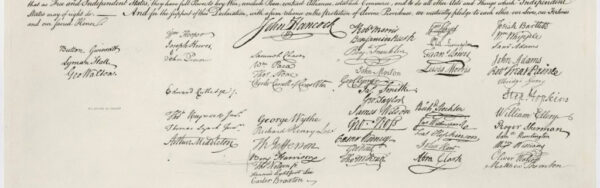 that as Free and Independent States, they have full Power to levy War, conclude Peace, contract Alliances, establish Commerce, and to do all other Acts and Things which Independent
States may of right do. And for the support of this Declaration, with a firm reliance on the protection of divine Providence, we mutually pledge to each other our Lives, our Fortunes
and our sacred Honor.
John Hancock
Button Gwinnett
Lyman Hall
Geo Walton.
Wm Hooper
Joseph Hewes,
John Penn
Edward Rutledge
Thos Heyward Junr
Thomas Lynch Junr
Arthur Middleton
Samuel Chase
Wm Paca
Thos Stone
Charles Carroll of Carrollton
George Wythe
Richard Henry Lee
Th Jefferson
Benj Harrison
Thos Nelson jr
Francis Lightfoot Lee
Carter Braxton
Robt Morris
Benjamin Rush
Benj Franklin
John Morton
Geo Clymer
Jas Smith
Geo Taylor
James Wilson
Geo Ross
Caesar Rodney
Geo Read
Tho M:Kean
Wm Floyd
Phil Livingston
Frans Lewis
Lewis Morris
Richd Stockton
Jno Witherspoon
Fras Hopkinson
John Hart
Abra Clark
Josiah Bartlett
Wm Whipple
Saml Adams
John Adams
Robt Treat Paine
Elbridge Gerry
Step Hopkins
William Ellery
Roger Sherman
Saml Huntington
Wm Williams
Oliver Wolcott
Matthew Thornton